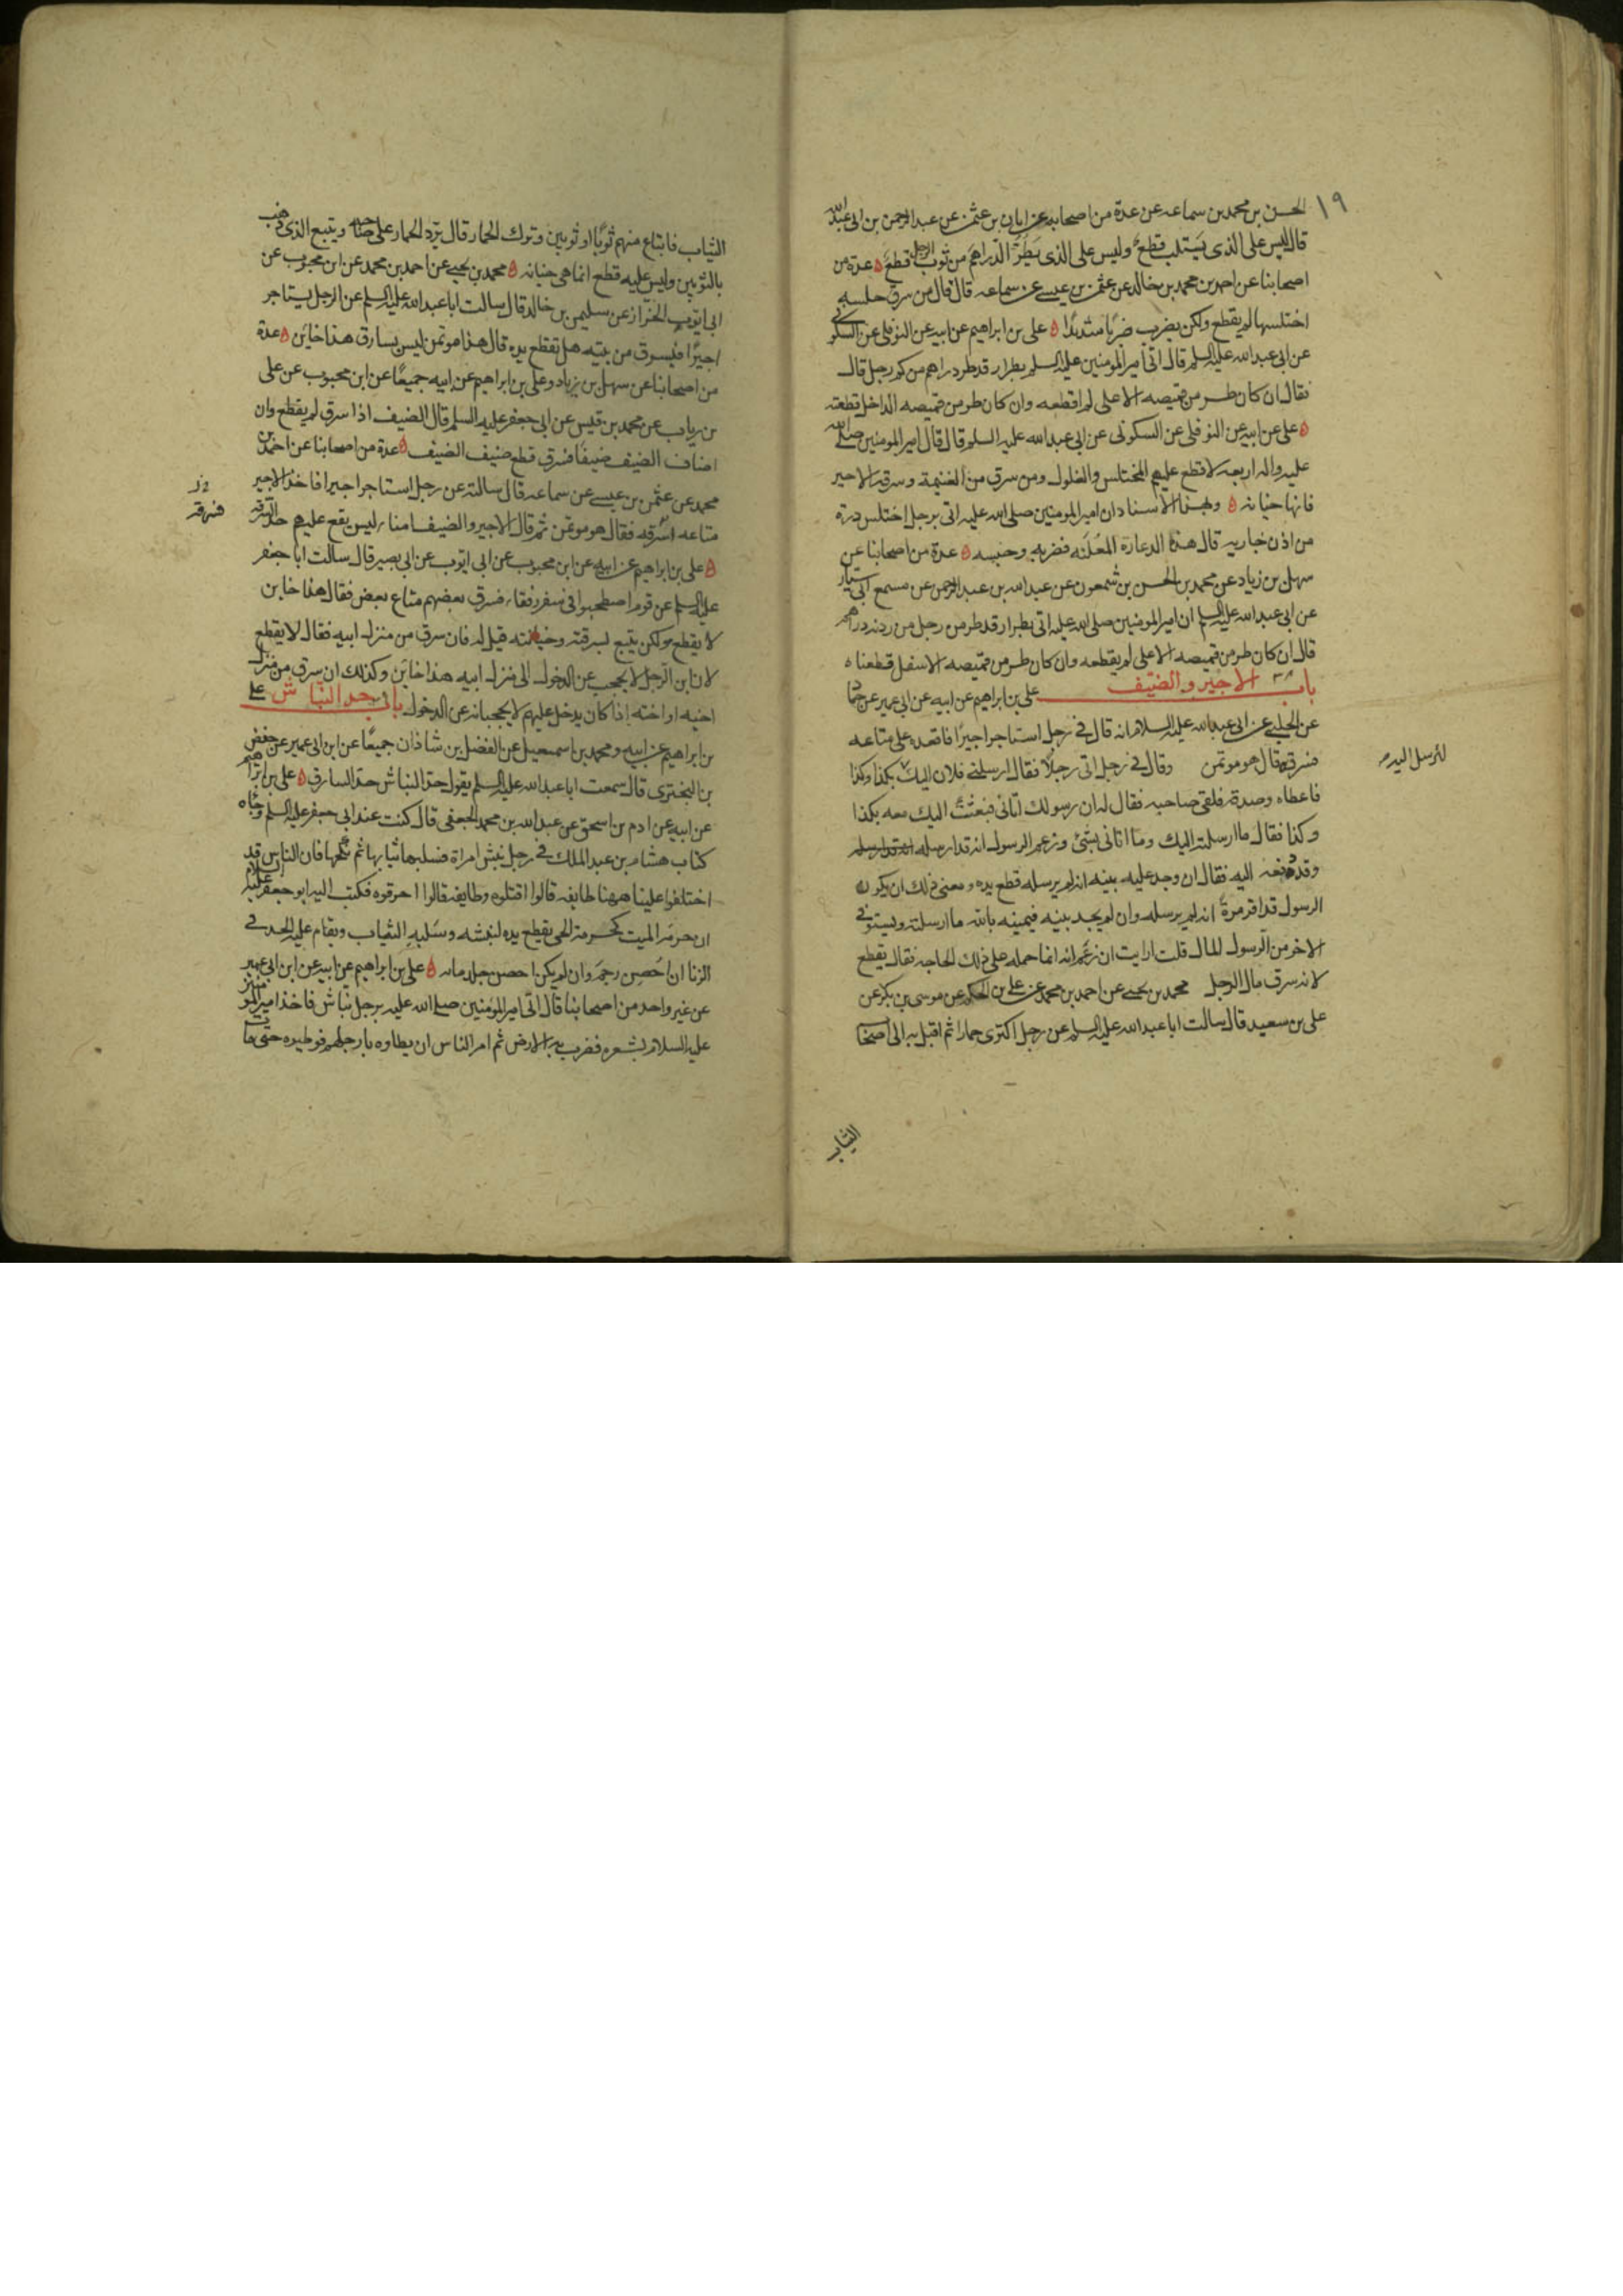 ١٩
الحسن بن محمد بن سماعه عن عدة من اصحابه عن ابان بن عثمن عن عبد الرحمن بن ابى عبد الله
قال ليس على الذى يستلب قطع وليس على الذى يطرّ الدراهم من ثوب الرجل قطع ه عدة من
اصحابنا عن احمد بن محمد بن خالد عن عثمن بن عيسى عن سماعه قال قال من سرق خلسه
اختلسها لم يقطع ولكن يضرب ضربًا شديدًا ه على بن ابراهيم عن ابيه عن النوفلى عن السكونى
عن ابى عبد الله عليه السلم قال اتى امير المومنين عليه السلم بطرار قد طر دراهم من كم رجل قال
فقال ان كان طر من قميصه الاعلى لم اقطعه وان كان طر من قميصه الداخل قطعته
ه على عن ابيه عن النوفلى عن السكونى عن ابى عبد الله عليه السلم قال قال امير المومنين صلى الله
عليه واله اربعه لا قطع عليهم المختلس والغلول ومن سرق من الغنيمة وسرقه الاجير
فانها خيانه ه وبهذا الاسناد ان امير المومنين صلى الله عليه اتى برجل اختلس درة
من اذن جاريه قال هذه الدعارة المعلنه فضربه وحبسه ه عدة من اصحابنا عن
سهل بن زياد عن محمد بن الحسن بن شمعون عن عبد الله بن عبد الرحمن عن مسمع ابى سيار
عن ابى عبد الله عليه السلم ان امير المومنين صلى الله عليه اتى بطرار قد طر من رجل من ردنه دراهم
قال ان كان طر من قميصه الاعلى لم يقطعه وان كان طر من قميصه الاسفل قطعناه
باب الاجير والضيف على بن ابراهيم عن ابيه عن ابى عمير عن حماد
عن الحلبى عن ابى عبد الله عليه السلام انه قال فى رجل استاجر اجيرًا فاقعده على متاعه
فسرقه قال هو موتمن وقال فى رجل اتى رجلًا فقال ارسلنى فلان اليك بكذا وكذا
لترسل اليه
فاعطاه وصدقه فلقى صاحبه فقال له ان رسولك اتانى فبعثت اليك معه بكذا
وكذا فقال ما ارسلته اليك وما اتانى بشئ وزعم الرسول انه قد ارسله
وقد دفعه اليه فقال ان وجد عليه بينه انه لم يرسله قطع يده ومعنى ذلك ان يكون
الرسول قد اقر مرة انه لم يرسله وان لم يجد بينه فيمينه بالله ما ارسلته ويستوفى
الاخر من الرسول المال قلت ارايت ان زعم انه انما حمله على ذلك الحاجه فقال يقطع
لانه سرق مال الرجل محمد بن يحيى عن احمد بن محمد عن على بن الحكم عن موسى بن بكر عن
على بن سعيد قال سالت ابا عبد الله عليه السلم عن رجل اكترى حمارا ثم اقبل به الى اصحاب
الثياب
الثياب فابتاع منهم ثوبًا او ثوبين وترك الحمار قال يرد الحمار على صاحبه ويتبع الذى ذهب
بالثوبين وليس عليه قطع انما هى خيانه ه محمد بن يحيى عن احمد بن محمد عن ابن محبوب عن
ابى ايوب الخزاز عن سليمن بن خالد قال سالت ابا عبد الله عليه السلم عن الرجل يستاجر
اجيرًا فيسرق من بيته هل تقطع يده قال هذا موتمن ليس بسارق هذا خاين ه عدة
من اصحابنا عن سهل بن زياد وعلى بن ابراهيم عن ابيه جميعًا عن ابن محبوب عن على
بن رياب عن محمد بن قيس عن ابى جعفر عليه السلم قال الضيف اذا سرق لم يقطع وان
اضاف الضيف ضيفًا فسرق قطع ضيف الضيف ه عدة من اصحابنا عن احمد بن
محمد عن عثمن بن عيسى عن سماعه قال سالته عن رجل استاجر اجيرا فاخذ الاجير
متاعه فسرقه فقال هو موتمن ثم قال الاجير والضيف امناء ليس يقع عليهم حد السرقه
فسرقه
ه على بن ابراهيم عن ابيه عن ابن محبوب عن ابى ايوب عن ابى بصير قال سالت ابا جعفر
عليه السلم عن قوم اصطحبوا فى سفر رفقاء فسرق بعضهم متاع بعض فقال هذا خاين
لا يقطع ولكن يتبع بسرقته وخيانته قيل له فان سرق من منزل ابيه فقال لا يقطع
لان ابن الرجل لا يحجب عن الدخول الى منزل ابيه هذا خاين وكذلك ان سرق من منزل
اخيه او اخته اذا كان يدخل عليهم لا يحجبانه عن الدخول باب حد النباش على
بن ابراهيم عن ابيه ومحمد بن اسمعيل عن الفضل بن شاذان جميعًا عن ابن ابى عمير عن حفص
بن البخترى قال سمعت ابا عبد الله عليه السلم يقول حد النباش حد السارق ه على بن ابراهيم
عن ابيه عن ادم بن اسحق عن عبد الله بن محمد الجعفى قال كنت عند ابى جعفر عليه السلم وجاه
كتاب هشام بن عبد الملك فى رجل نبش امراة فسلبها ثيابها ثم نكحها فان الناس قد
اختلفوا علينا ههنا طايفه قالوا اقتلوه وطايفه قالوا احرقوه فكتب اليه ابو جعفر عليه السلام
ان حرمه الميت كحرمة الحى يقطع يده لنبشه وسلبه الثياب ويقام عليه الحد فى
الزنا ان احصن رجم وان لم يكن احصن جلد مايه ه على بن ابراهيم عن ابيه عن ابن ابى عمير
عن غير واحد من اصحابنا قال اتى امير المومنين صلى الله عليه برجل نباش فاخذ امير المومنين
عليه السلام بشعره فضرب به الارض ثم امر الناس ان يطاوه بارجلهم فوطيوه حتى مات